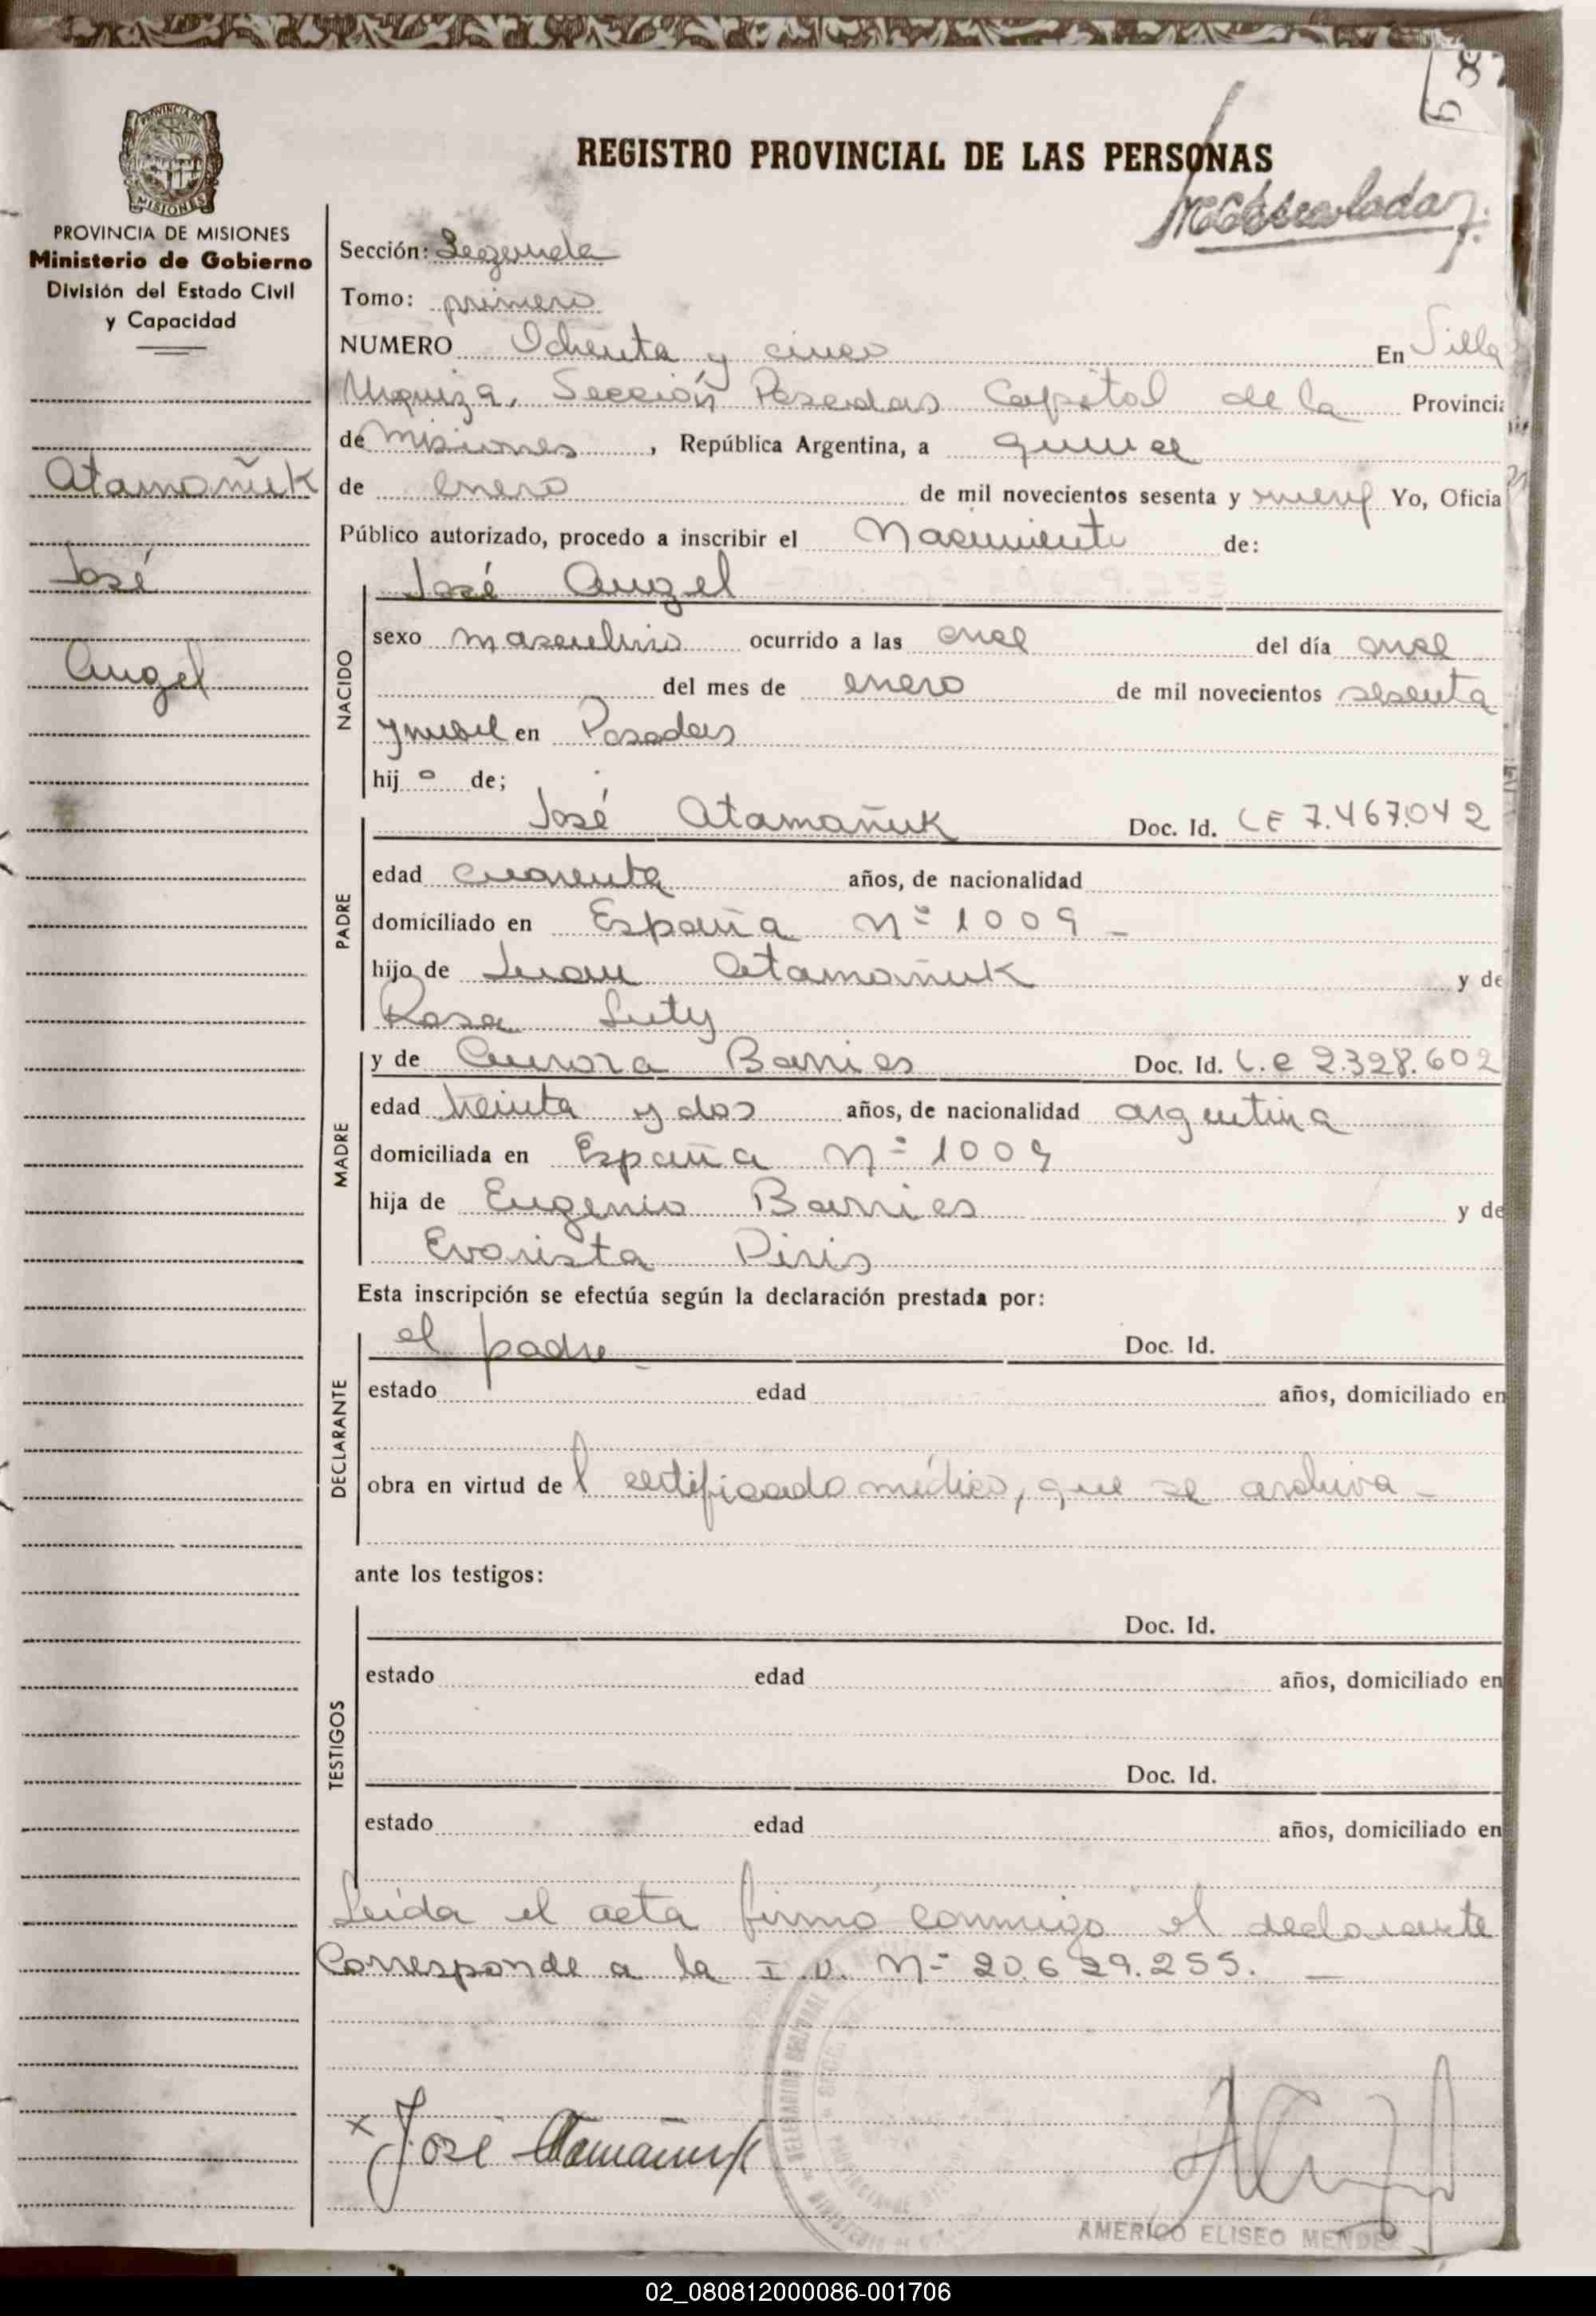 687
REGISTRO PROVINCIAL DE LAS PERSONAS
PROVINCIA DE
MISIONES
PROVINCIA DE MISIONES
Ministerio de Gobierno
División del Estado Civil
y Capacidad
Atamañuk
José
Angel
Sección: Segunda
Tomo: primero
NUMERO Ochenta y cinco En Villa
Urquiza, Sección Posadas Capital de la Provincia
de Misiones, República Argentina, a quince
de enero de mil novecientos sesenta y nueve Yo, Oficia
Público autorizado, procedo a inscribir el Nacimiento de:
José Angel
NACIDO
sexo masculino ocurrido a las once del día once
del mes de enero de mil novecientos sesenta
y nueve en Posadas
hijo de;
PADRE
José Atamañuk Doc. Id. LE 7.467.042
edad cuarenta años, de nacionalidad
domiciliado en España Nº 1009 -
hijo de Juan Atamañuk y de
Rosa Luty
MADRE
y de Aurora Barrios Doc. Id. L.C 2.328.602
edad treinta y dos años, de nacionalidad argentina
domiciliada en España Nº 1009
hija de Eugenio Barrios y de
Evarista Piris
Esta inscripción se efectúa según la declaración prestada por:
DECLARANTE
el padre Doc. Id.
estado edad años, domiciliado en
obra en virtud del certificado médico, que se archiva -
ante los testigos:
TESTIGOS
Doc. Id.
estado edad años, domiciliado en
Doc. Id.
estado edad años, domiciliado en
Leída el acta firmó conmigo el declarante
Corresponde a la I.D. Nº 20.629.255. -
x José Atamañuk
AMERICO ELISEO MENDEZ
02_080812000086-001706